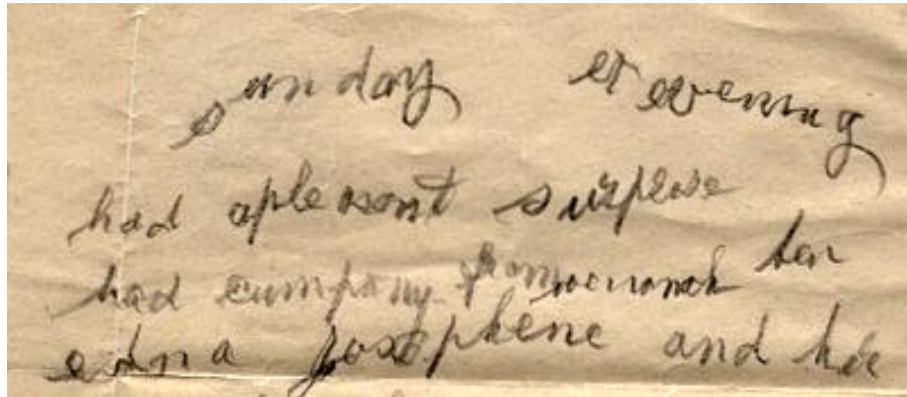 sunday ev evening
had apleasont surplose
had cumpany from ben
edna josephene and her